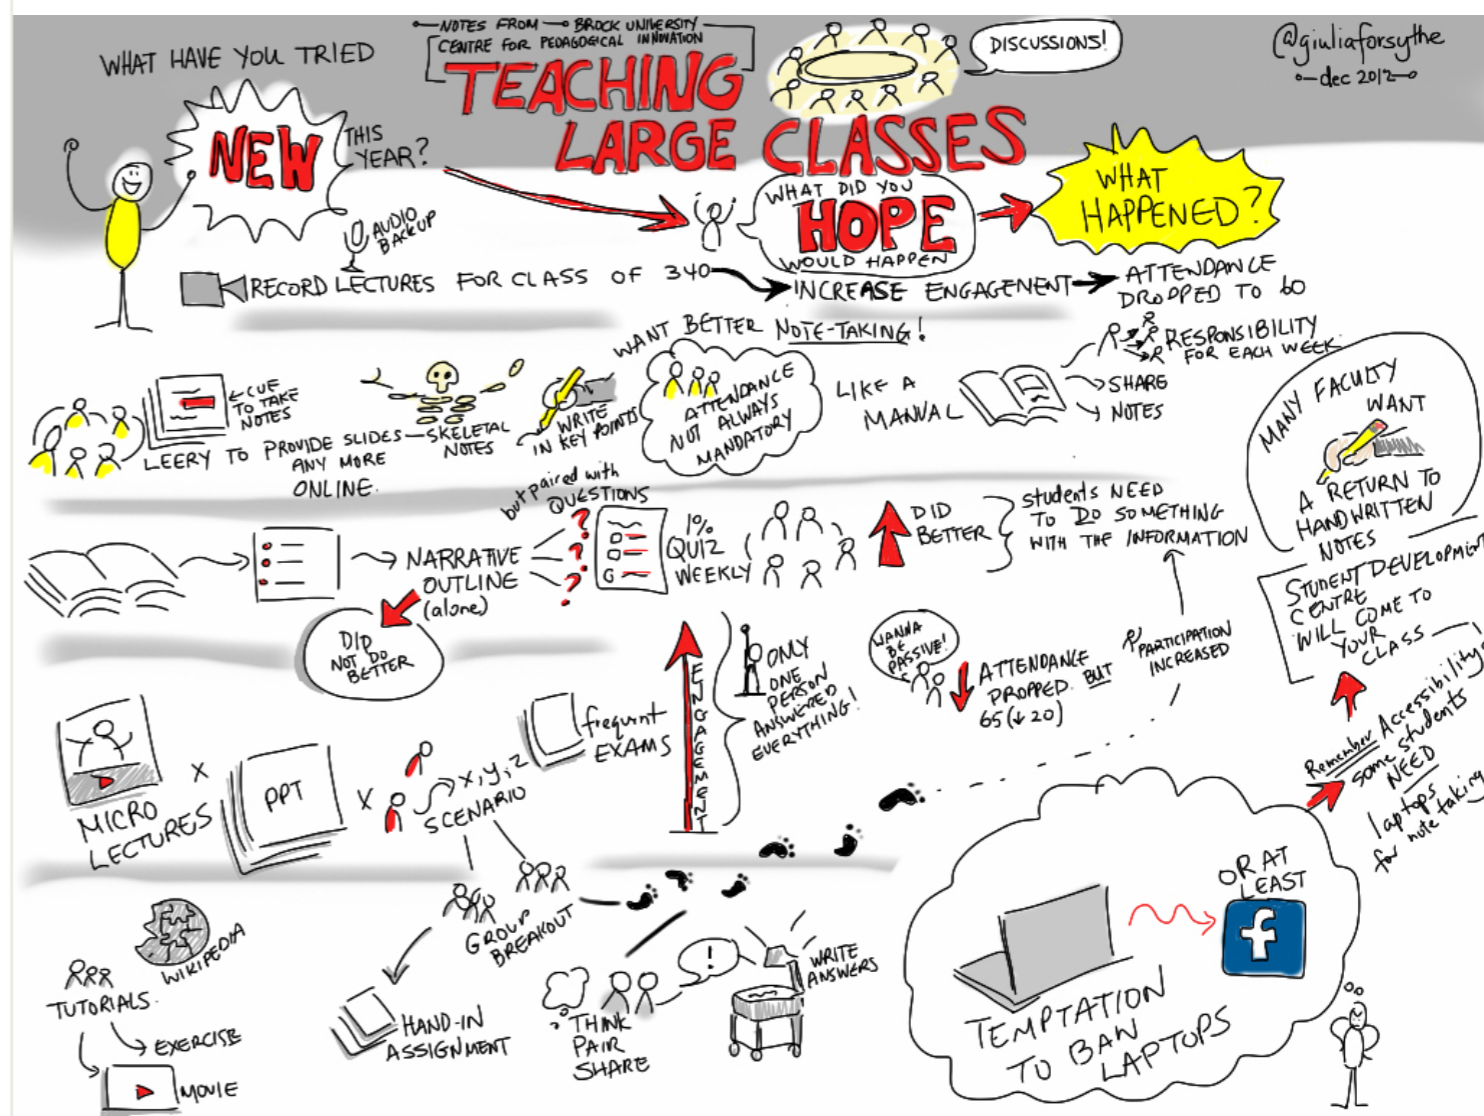 NOTES FROM BROCK UNIVERSITY
CENTRE FOR PEDAGOGICAL INNOVATION
TEACHING
LARGE CLASSES
DISCUSSIONS!
@giuliaforsythe
dec 2012
WHAT HAVE YOU TRIED
NEW
THIS
YEAR?
WHAT DID YOU
HOPE
WOULD HAPPEN
WHAT
HAPPENED?
AUDIO
BACKUP
RECORD LECTURES FOR CLASS OF 340
INCREASE ENGAGEMENT
ATTENDANCE
DROPPED TO 60
WANT BETTER NOTE-TAKING!
CUE
TO TAKE
NOTES
LEERY TO PROVIDE SLIDES
ANY MORE
ONLINE.
SKELETAL
NOTES
WRITE
IN KEY POINTS
ATTENDANCE
NOT ALWAYS
MANDATORY
LIKE A
MANUAL
RESPONSIBILITY
FOR EACH WEEK
SHARE
NOTES
MANY FACULTY
WANT
A RETURN TO
HANDWRITTEN
NOTES
NARRATIVE
OUTLINE
(alone)
DID
NOT DO
BETTER
but paired with
QUESTIONS
? ? ?
1%
QUIZ
WEEKLY
DID
BETTER
students NEED
TO DO SOMETHING
WITH THE INFORMATION
STUDENT DEVELOPMENT
CENTRE
WILL COME TO
YOUR
CLASS
MICRO
LECTURES
X
PPT
X
x, y, z
SCENARIO
frequent
EXAMS
ENGAGEMENT
ONLY
ONE
PERSON
ANSWERED
EVERYTHING!
WANNA
BE
PASSIVE!
ATTENDANCE
DROPPED BUT
65 (↓ 20)
PARTICIPATION
INCREASED
Remember Accessibility!
some students
NEED
laptops
for note taking
GROUP
BREAKOUT
HAND-IN
ASSIGNMENT
THINK
PAIR
SHARE
!
WRITE
ANSWERS
WIKIPEDIA
TUTORIALS
EXERCISE
MOVIE
OR AT
LEAST
f
TEMPTATION
TO BAN
LAPTOPS